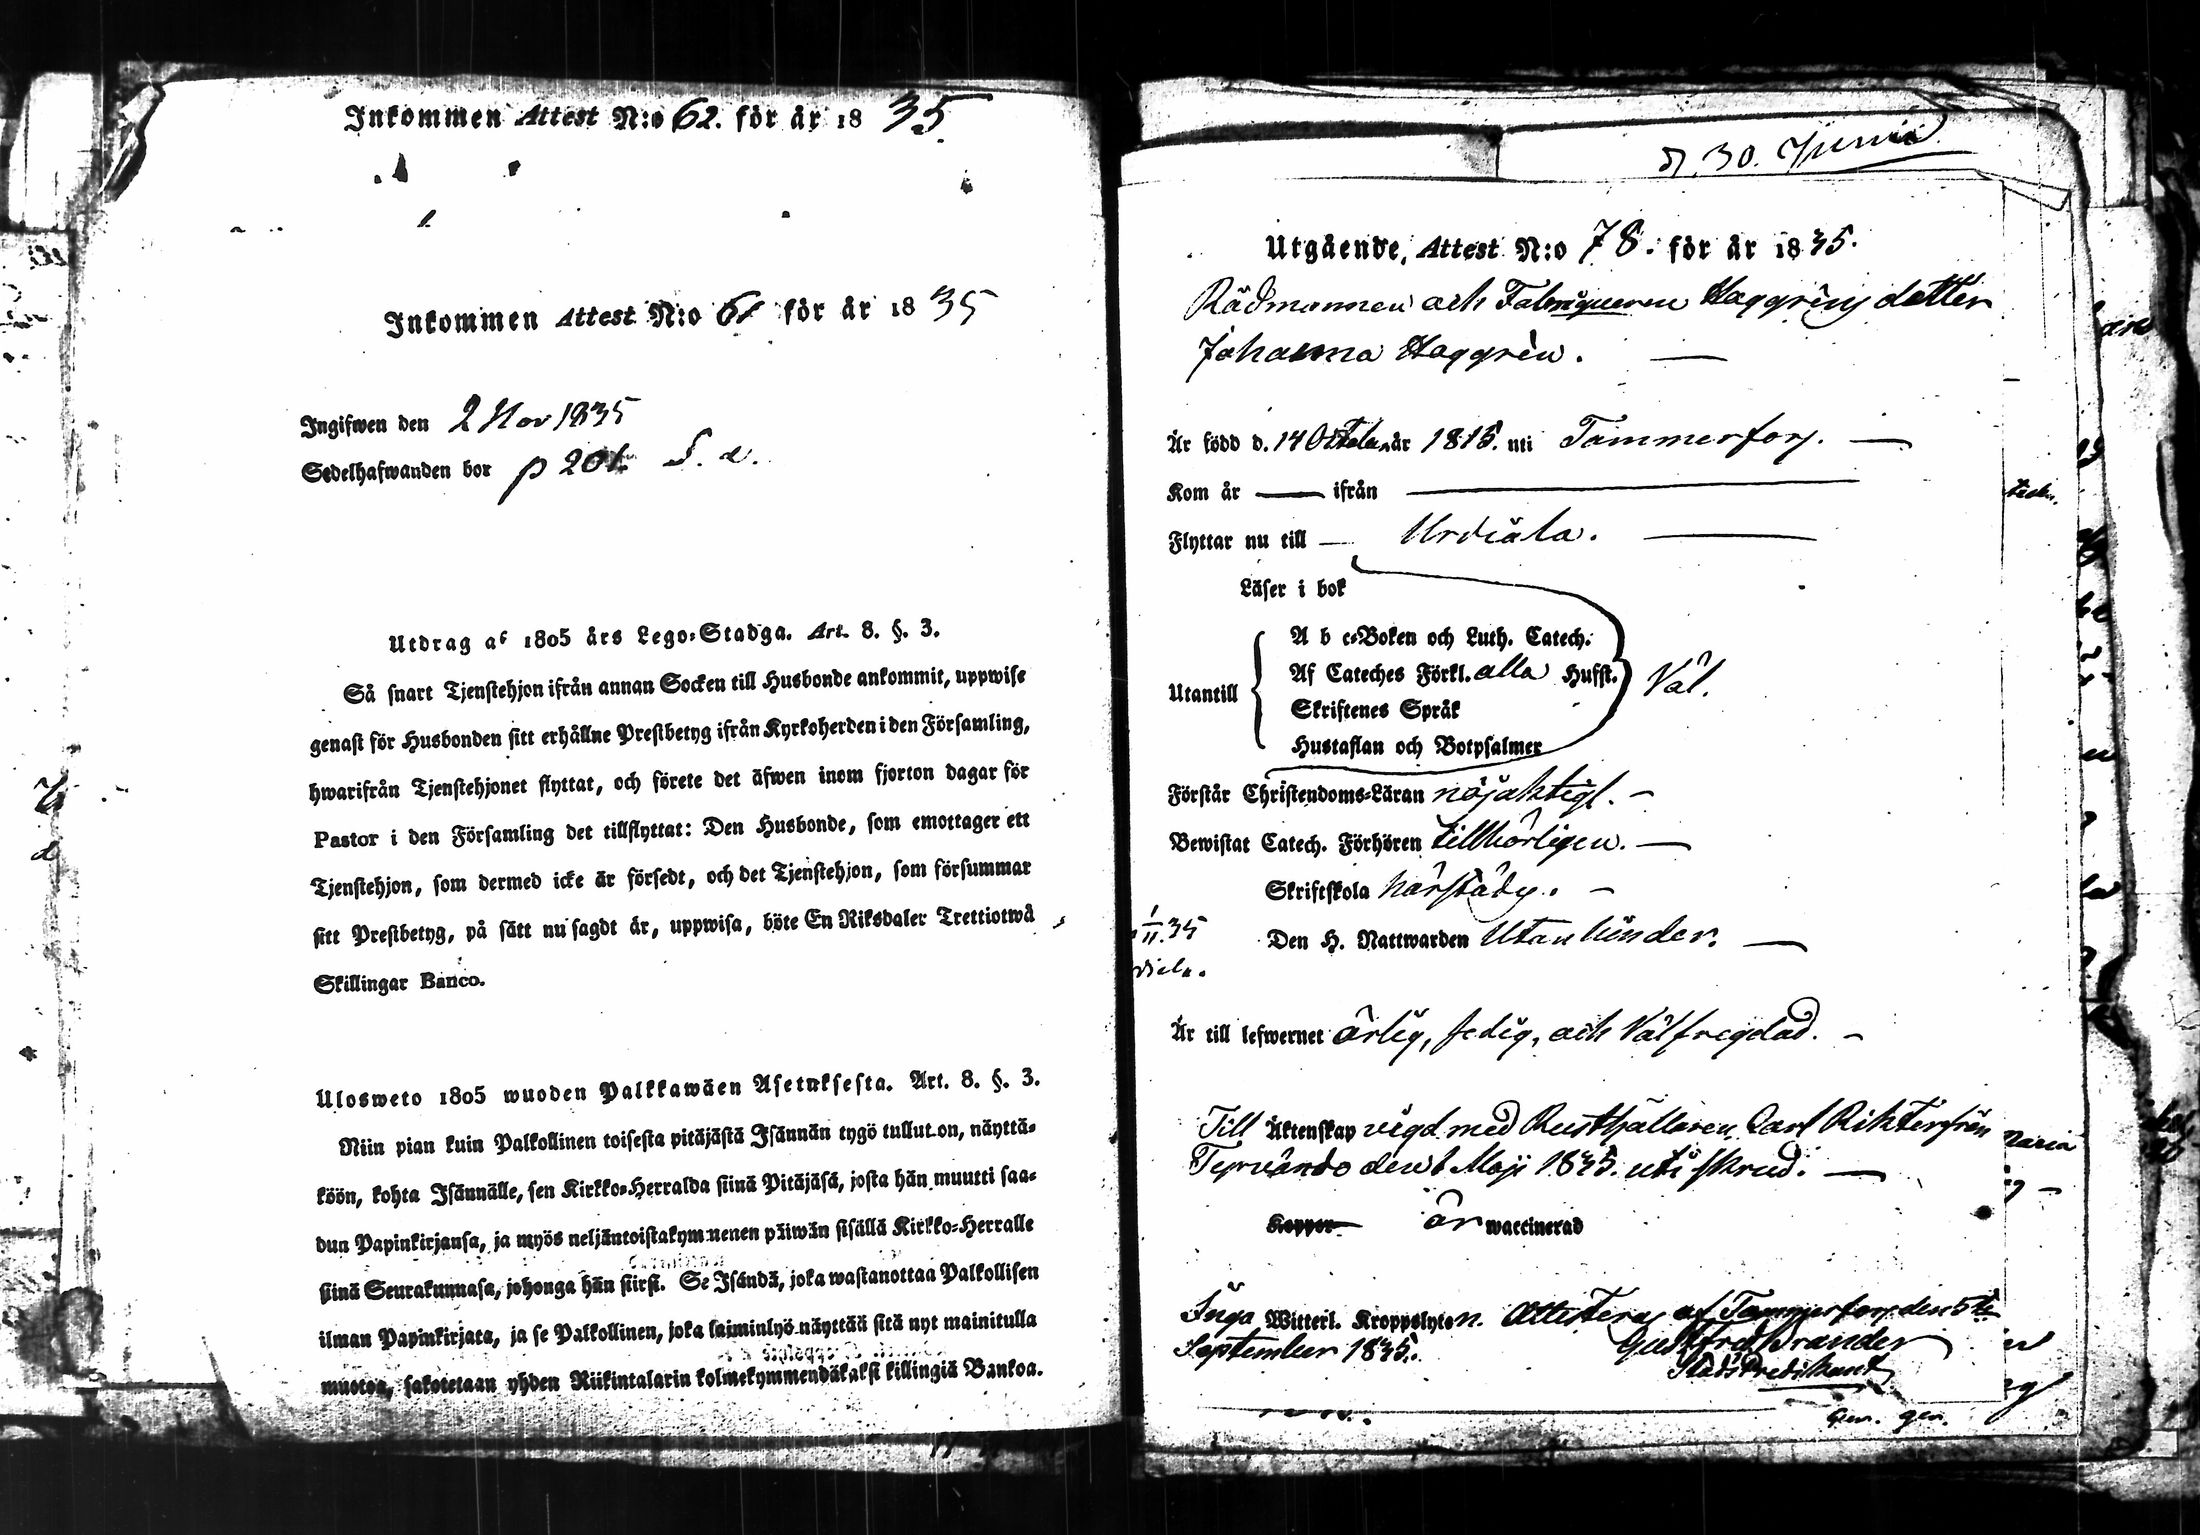 Inkommen Attest N:o 62. för år 1835.
Inkommen Attest N:o 61 för år 1835
Ingifwen den 2 Nov 1835
Sedelhafwanden bor p 201.
Utdrag af 1805 års Lego-Stadga. Art. 8. §. 3.
Så snart Tjenstehjon ifrån annan Socken till Husbonde ankommit, uppwise
genast för Husbonden sitt erhållne Prestbetyg ifrån Kyrkoherden i den Församling,
hwarifrån Tjenstehjonet flyttat, och förete det äfwen inom fjorton dagar för
Pastor i den Församling det tillflyttat: Den Husbonde, som emottager ett
Tjenstehjon, som dermed icke är försedt, och det Tjenstehjon, som försummar
sitt Prestbetyg, på sätt nu sagdt är, uppwisa, böte En Riksdaler Trettiotwå
Skillingar Banco.
Ulosweto 1805 wuoden Palkkawäen Asetuksesta. Art. 8. §. 3.
Niin pian kuin Palkollinen toisesta pitäjästä Isännän tygö tullut on, näyttä-
köön, kohta Isännälle, sen Kirkko-Herralda siinä Pitäjäsä, josta hän muutti saa-
dun Papinkirjansa, ja myös neljäntoistakymmenen päiwän sisällä Kirkko-Herralle
siinä Seurakunnasa, johonga hän siirsi. Se Isändä, joka wastanottaa Palkollisen
ilman Papinkirjata, ja se Palkollinen, joka laiminlyö näyttää sitä nyt mainitulla
muotoa, sakotetaan yhden Riikintalarin kolmekymmendäkaksi killingiä Bankoa.
d. 30. Junii
Utgående, Attest N:o 78. för år 1835.
Rådmannen och Fabriqueren Haggréns dotter
Johanna Haggrén.
Är född d. 14 Octob. år 1815. uti Tammerfors.
Kom år — ifrån
Flyttar nu till — Urdiala.
Läser i bok
A b c-Boken och Luth. Catech.
Af Cateches Förkl. alla Hufst.
Utantill
Väl.
Skriftenes Språk
Hustaflan och Botpsalmer
Förstår Christendoms-Läran nöjaktigt.
Bewistat Catech. Förhören tillbörligen.
Skriftskola härstädes.
Den H. Nattwarden Utan hinder.
Är till lefwernet ärlig, sedig, och Välfregdad.
Till Äktenskap vigd med Rusthållaren Carl Rikter från
den 6 Maji 1835. uti skrud.
Koppor är waccinerad
Inga Witterl. Kroppslyten. Attesteras af Tammerfors den 5te
September 1835. Gustf Fred: Strander
Stads Predikant